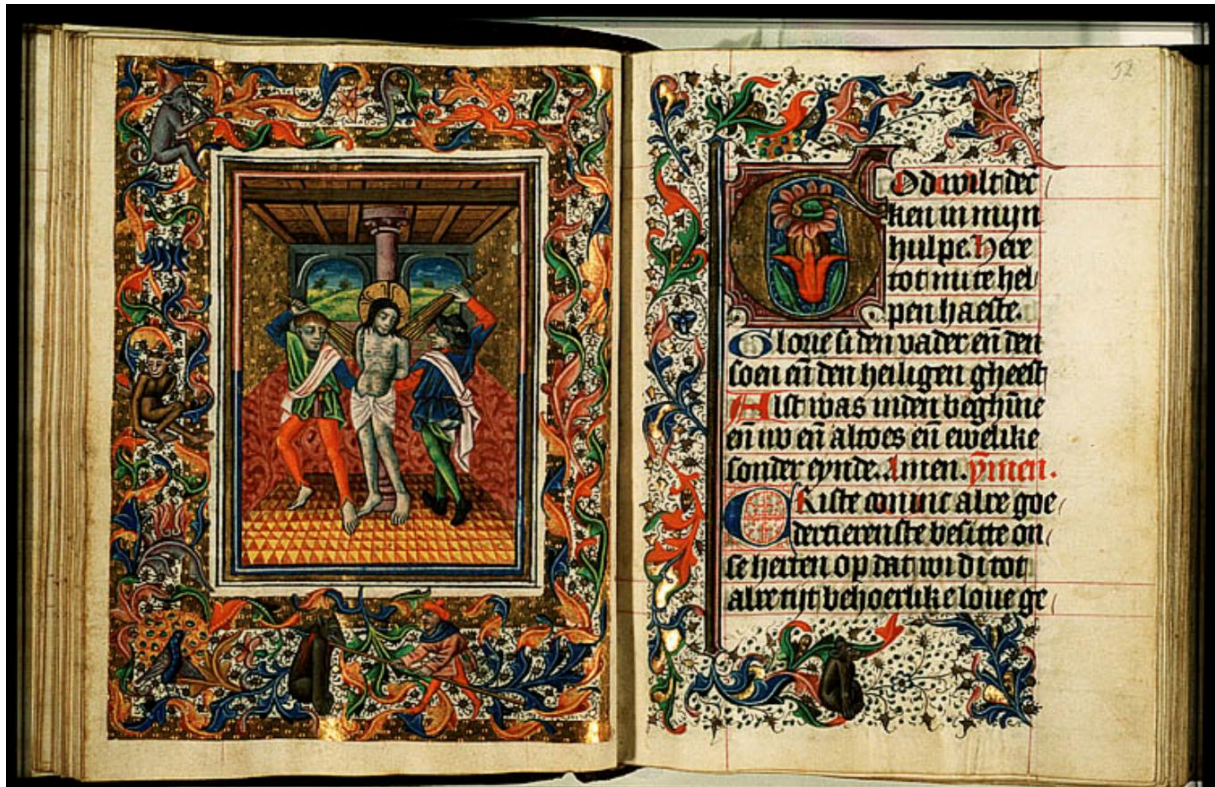 52
God wilt dec
ken in mijn
hulpe. Here
tot mi te hel
pen haeste.
Glorie si den vader en̄ den
soen en̄ den heiligen gheest
Alst was inden beghīne
en̄ nv en̄ altoes en̄ ewelike
sonder eynde. Amen. ymen.
CRiste coninc alre goe
dertierenste besitte on
se herten op dat wi di tot
alre tijt behoerlike loue ge